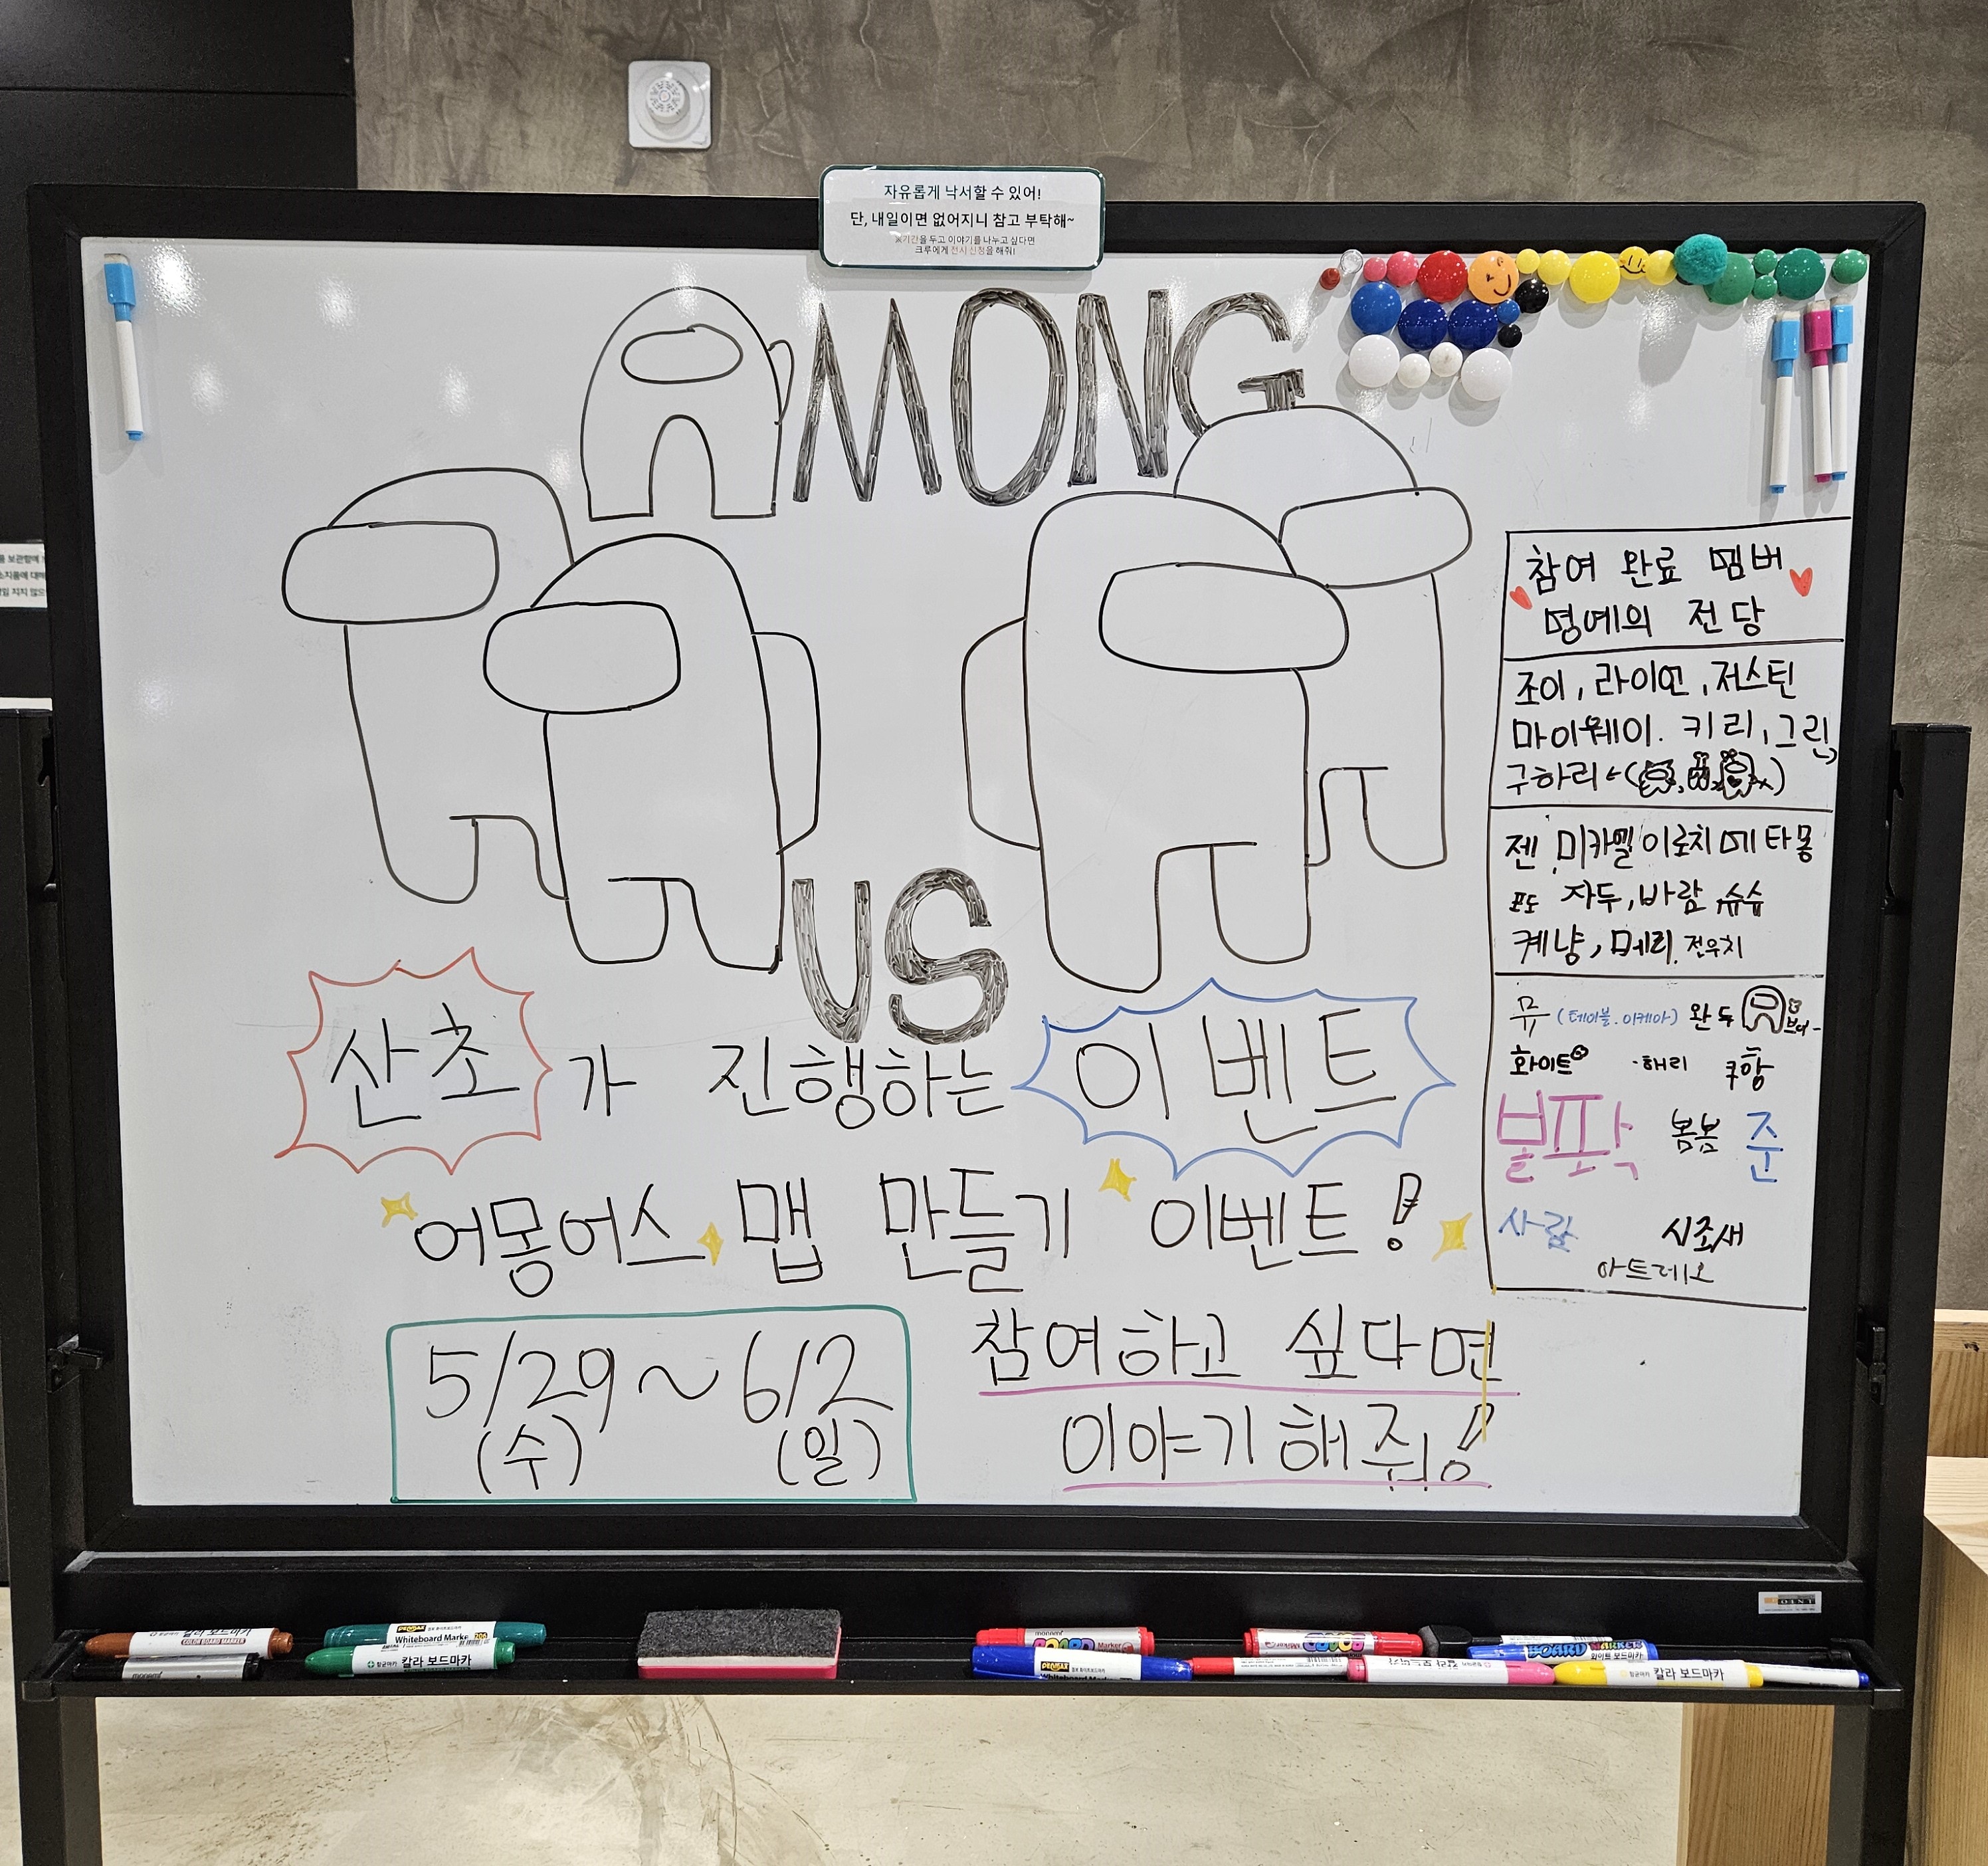 자유롭게 낙서할 수 있어!
단, 내일이면 없어지니 참고 부탁해~
※기간을 두고 이야기를 나누고 싶다면
크루에게 전시 신청을 해줘!
AMONG
US
산초가 진행하는 이벤트
어몽어스 맵 만들기 이벤트!
5/29 ~ 6/2
(수) (일)
참여하고 싶다면
이야기해줘!
참여 완료 멤버
명예의 전당
조이, 라이언, 저스틴
마이웨이. 키리, 그린,
구하리
젠, 미카엘 이로치메타몽
포도 자두, 바람, 슈슈
케냥, 메리, 전우치
뮤 (테이블.이케아) 완두
화이트 해리 쿠항
봄봄 준
사람 시조새
아트레이오
칼라 보드마카
COLOR BOARD MARKER
monami
Whiteboard Marker
칼라 보드마카
monami BOARD Marker
Whiteboard Marker
BOARD MARKER
화이트 보드마카
칼라 보드마카
칼라 보드마카
POINT